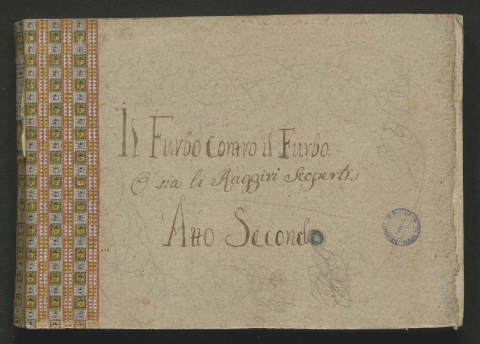 Il Furbo contro il Furbo
O sia li Raggiri Scoperti
Atto Secondo